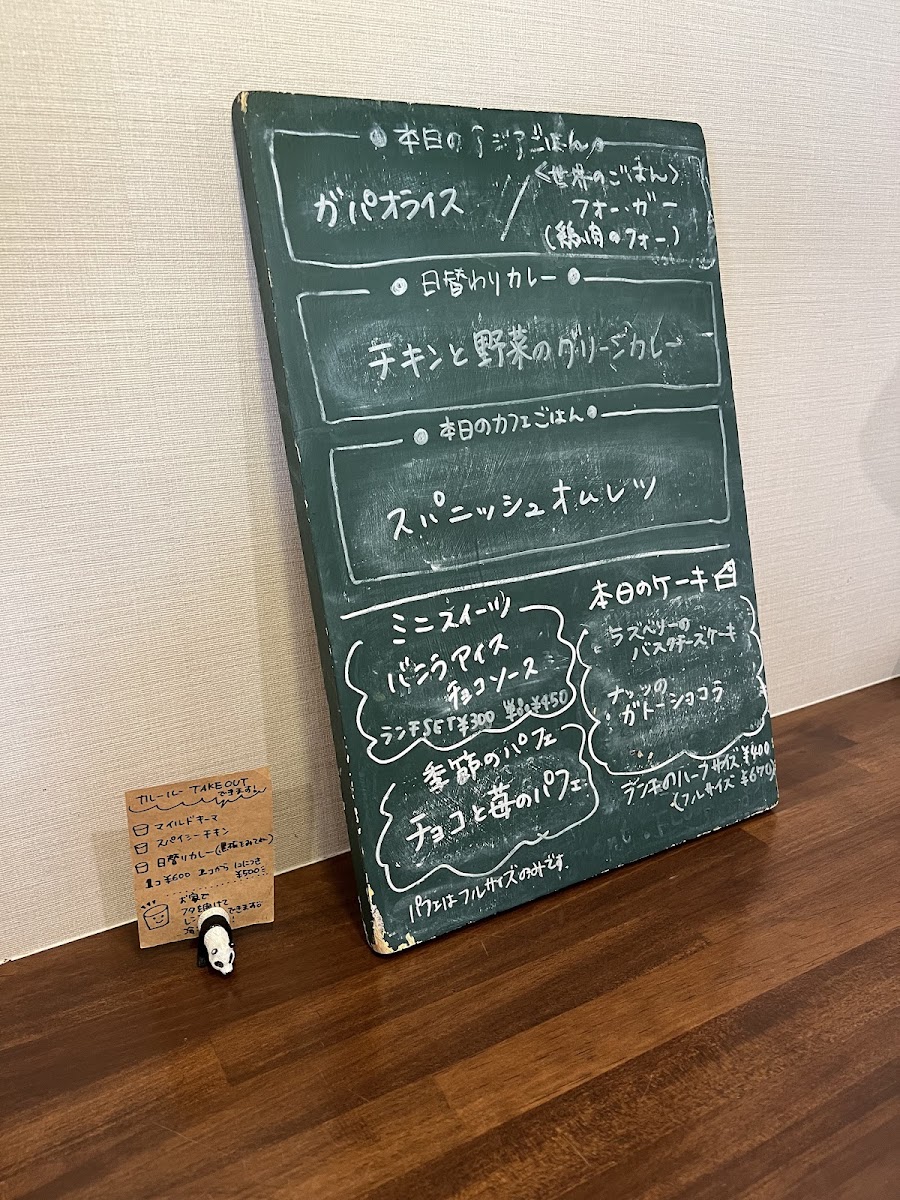 本日のアジアごはん
ガパオライス
<世界のごはん>
フォー・ガー
(鶏肉のフォー)
日替わりカレー
チキンと野菜のグリーンカレー
本日のカフェごはん
スパニッシュオムレツ
ミニスイーツ
バニラアイス
チョコソース
ランチSET¥300 ¥450
本日のケーキ
ラズベリーの
バスクチーズケーキ
ナッツの
ガトーショコラ
ランチのハーフサイズ ¥400
(フルサイズ ¥670)
季節のパフェ
チョコと苺のパフェ
パフェはフルサイズのみです
カレールー TAKEOUT
できます
マイルドキーマ
スパイシーチキン
日替りカレー(黒板をみてね)
1コ¥600 2コから 1コにつき
¥500
お家で
フタを開けて
できます。